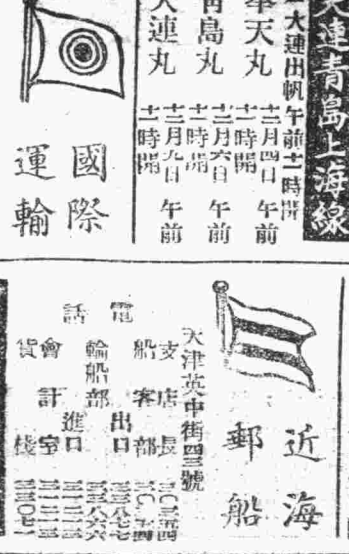 大連青島上海線
大連出帆午前十一時開
奉天丸 十二月四日 午前十一時開
青島丸 十二月六日 午前十一時開
大連丸 十二月九日 午前十一時開
國際
運輸
近海
郵船
天津英中街四三號
支店長
船客部
輪船部
出口
進口
電話
會計室
貨棧